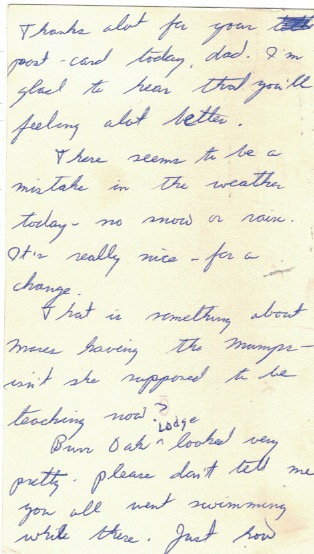 Thanks alot for your
post-card today, dad. I'm
glad to hear that you'll
feeling alot better.
There seems to be a
mistake in the weather
today - no snow or rain.
It's really nice - for a
change.
That is something about
Mares having the mumps -
isn't she supposed to be
teaching now?
Burr Oak ^ Lodge looked very
pretty. please don't tell me
you all went swimming
while there. Just how